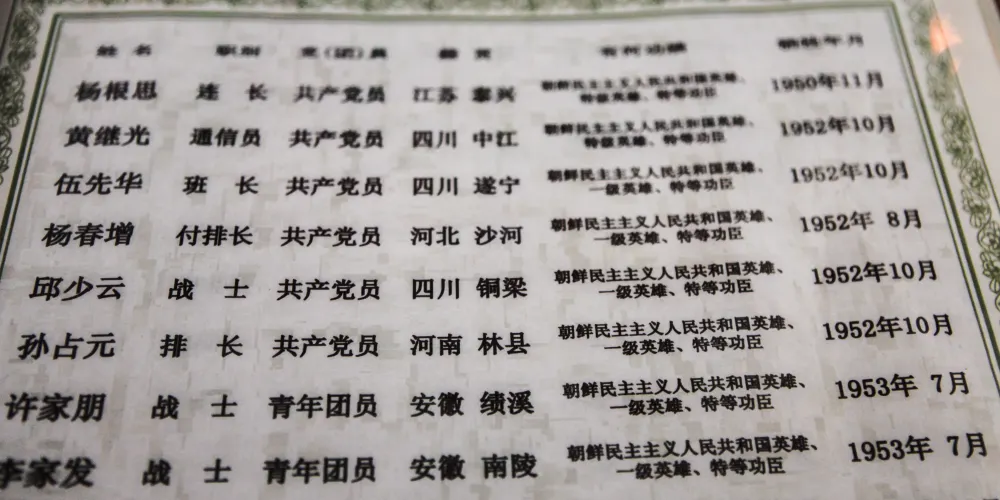 姓 名 职别 党(团)员 籍 贯 有何功勋 牺牲年月
杨根思 连 长 共产党员 江苏 泰兴 朝鲜民主主义人民共和国英雄、特级英雄、特等功臣 1950年11月
黄继光 通信员 共产党员 四川 中江 朝鲜民主主义人民共和国英雄、特级英雄、特等功臣 1952年10月
伍先华 班 长 共产党员 四川 遂宁 朝鲜民主主义人民共和国英雄、一级英雄、特等功臣 1952年10月
杨春增 付排长 共产党员 河北 沙河 朝鲜民主主义人民共和国英雄、一级英雄、特等功臣 1952年 8月
邱少云 战 士 共产党员 四川 铜梁 朝鲜民主主义人民共和国英雄、一级英雄、特等功臣 1952年10月
孙占元 排 长 共产党员 河南 林县 朝鲜民主主义人民共和国英雄、一级英雄、特等功臣 1952年10月
许家朋 战 士 青年团员 安徽 绩溪 朝鲜民主主义人民共和国英雄、一级英雄、特等功臣 1953年 7月
李家发 战 士 青年团员 安徽 南陵 朝鲜民主主义人民共和国英雄、一级英雄、特等功臣 1953年 7月